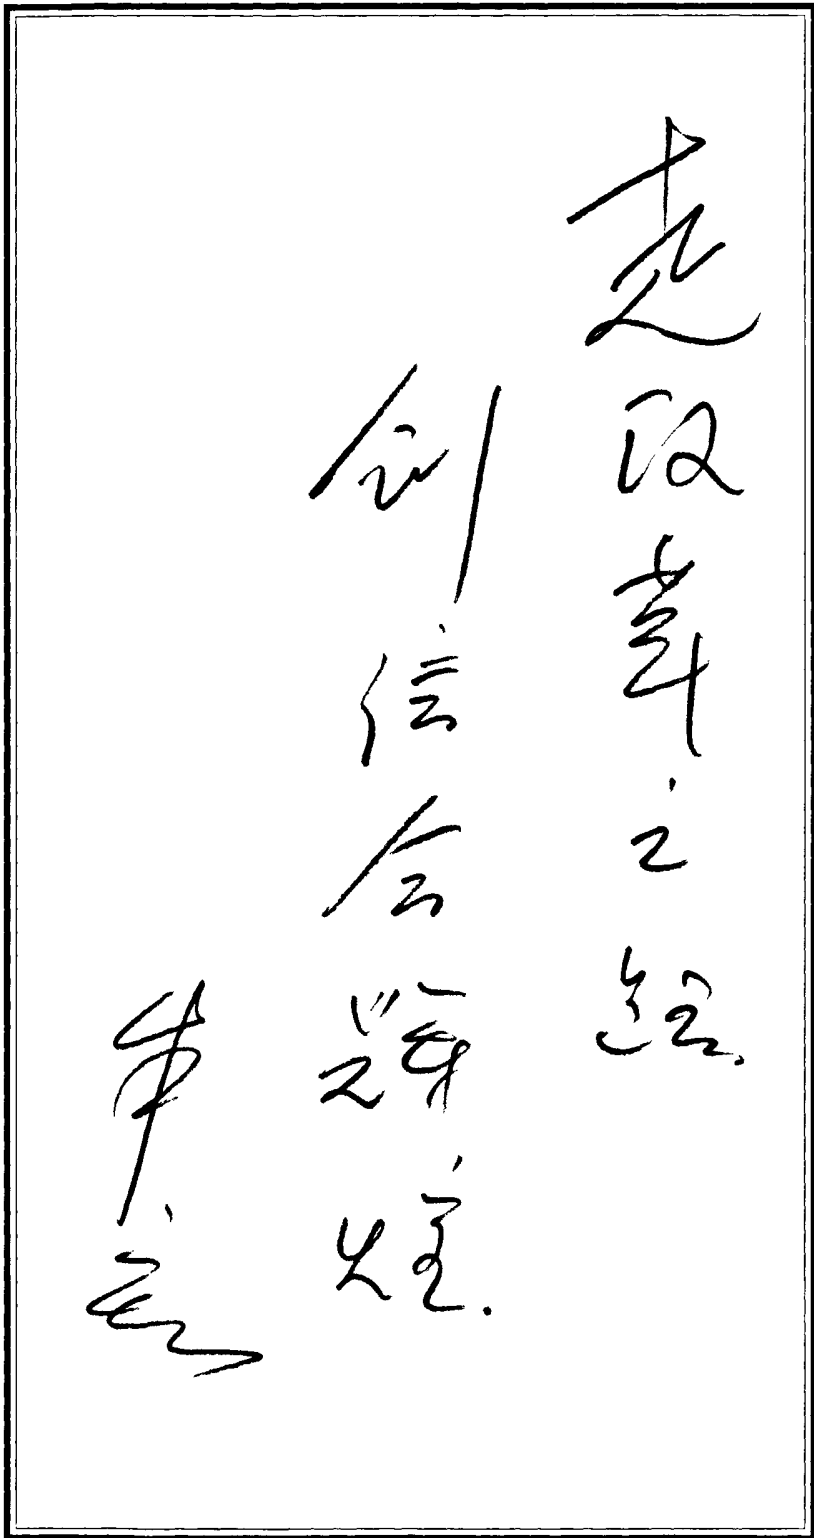 走改革之路
创信合辉煌.
朱